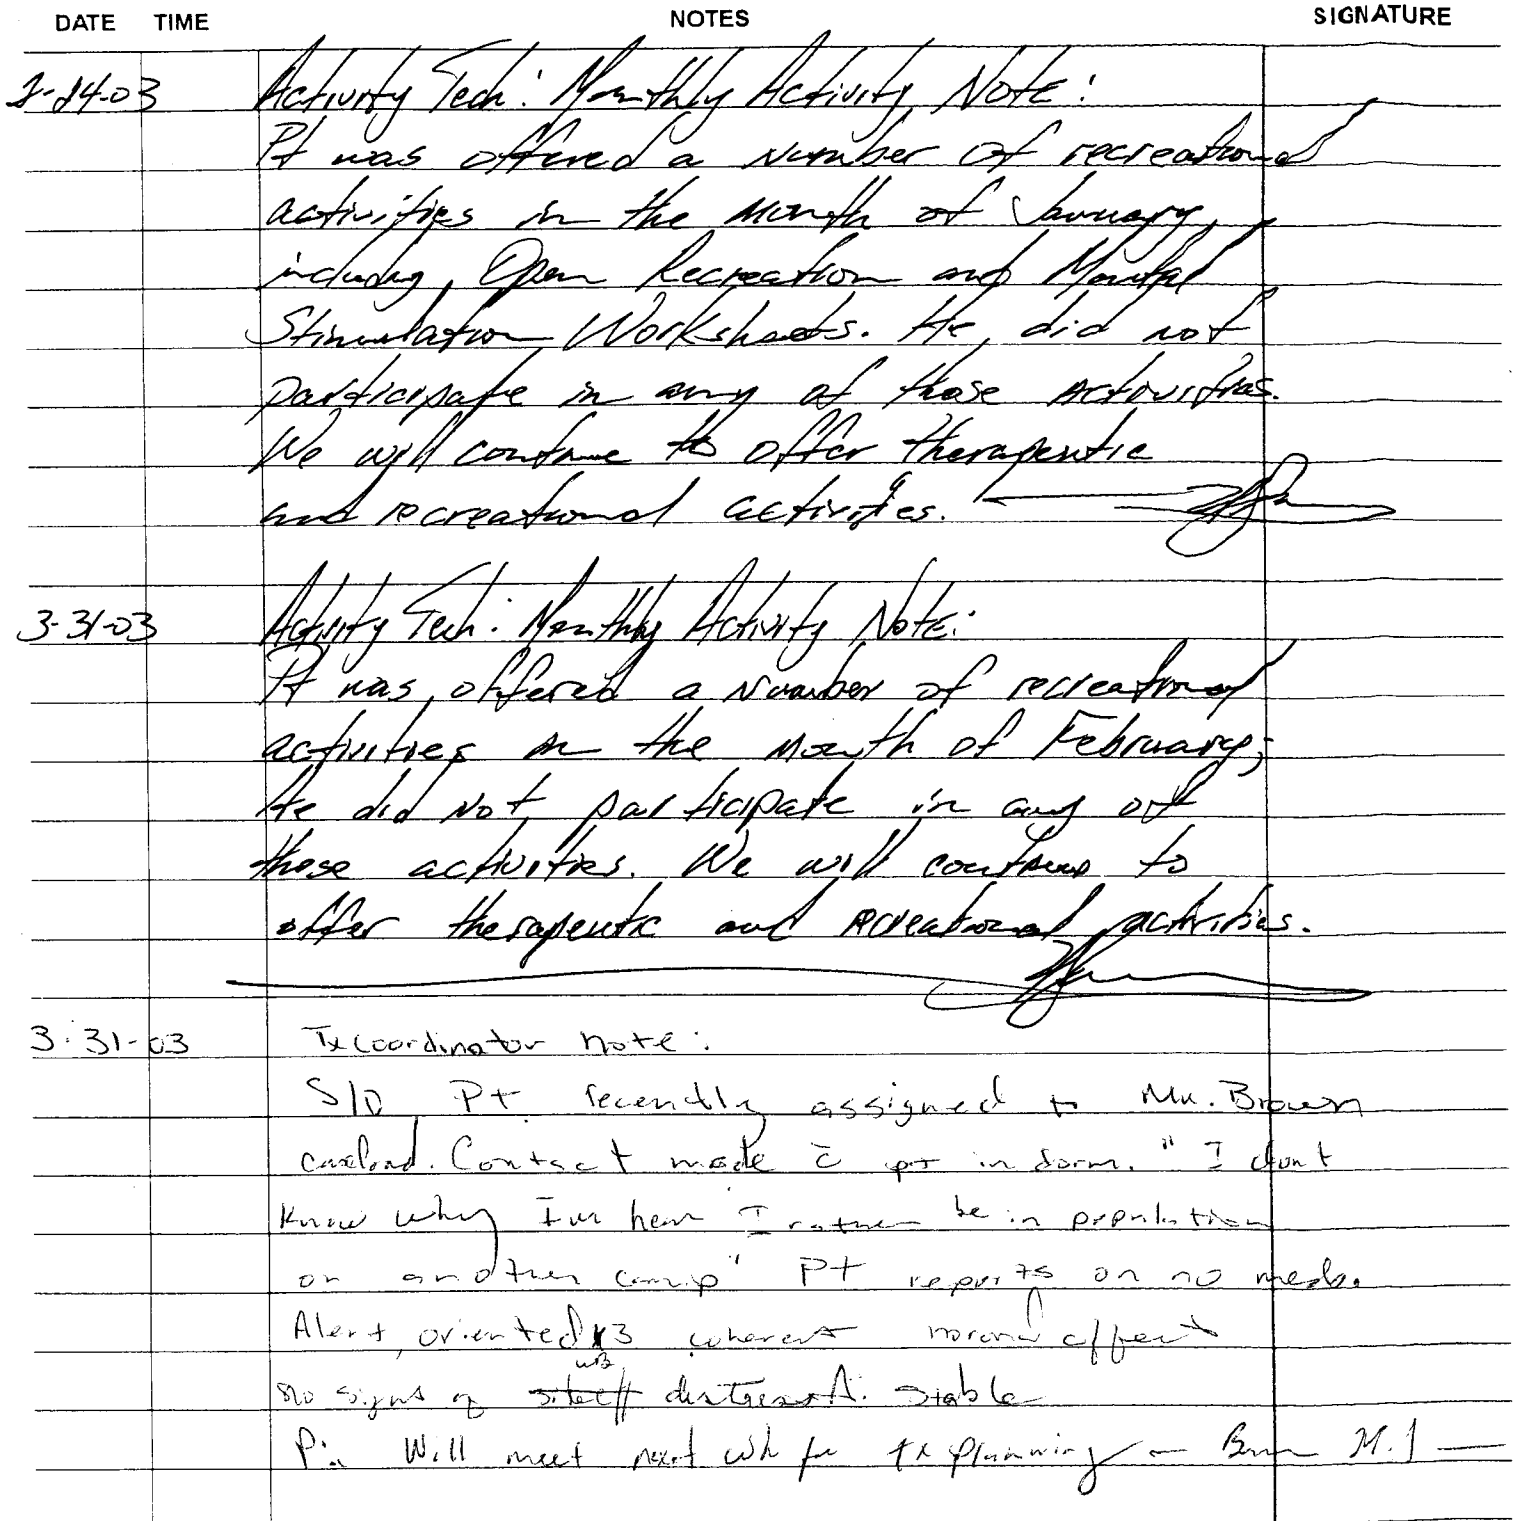 DATE TIME NOTES SIGNATURE
2-24-03 Activity Tech: Monthly Activity Note:
Pt was offered a number of recreational
activities in the month of January,
including, Open Recreation and Mental
Stimulation Worksheets. He did not
participate in any of those activities.
We will continue to offer therapeutic
and recreational activities.
3-31-03 Activity Tech: Monthly Activity Note:
Pt was offered a number of recreational
activities in the month of February;
He did not participate in any of
these activities. We will continue to
offer therapeutic and recreational activities.
3-31-03 Tx Coordinator note:
S/O Pt recently assigned to Mr. Brown
caseload. Contact made c̄ pt in dorm. "I don't
know why I'm hear I rather be in population
on another camp" Pt reports on no meds.
Alert, oriented x3 coherent normal affect
no signs of distress A: Stable
P: Will meet next wk for tx planning